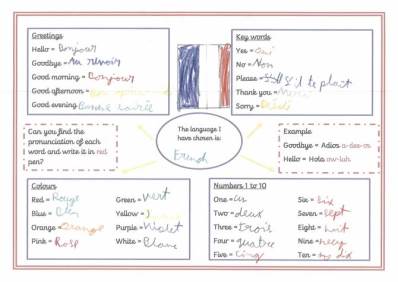 Greetings
Hello = Bonjour
Goodbye = Au revoir
Good morning = Bonjour
Good afternoon =
Good evening Bonne soirée
Key words
Yes = Oui
No = Non
Please = S'il te plait
Thank you = Merci
Sorry =
Can you find the pronunciation of each word and write it in red pen?
The language I have chosen is:
French
Example
Goodbye = Adios a-dee-os
Hello = Hola ow-luh
Colours
Red = Rouge
Blue =
Orange = Orange
Pink = Rose
Green = Vert
Yellow =
Purple = Violet
White = Blanc
Numbers 1 to 10
One = un
Two = deux
Three = trois
Four = quatre
Five = cinq
Six = Six
Seven = sept
Eight = huit
Nine =
Ten =